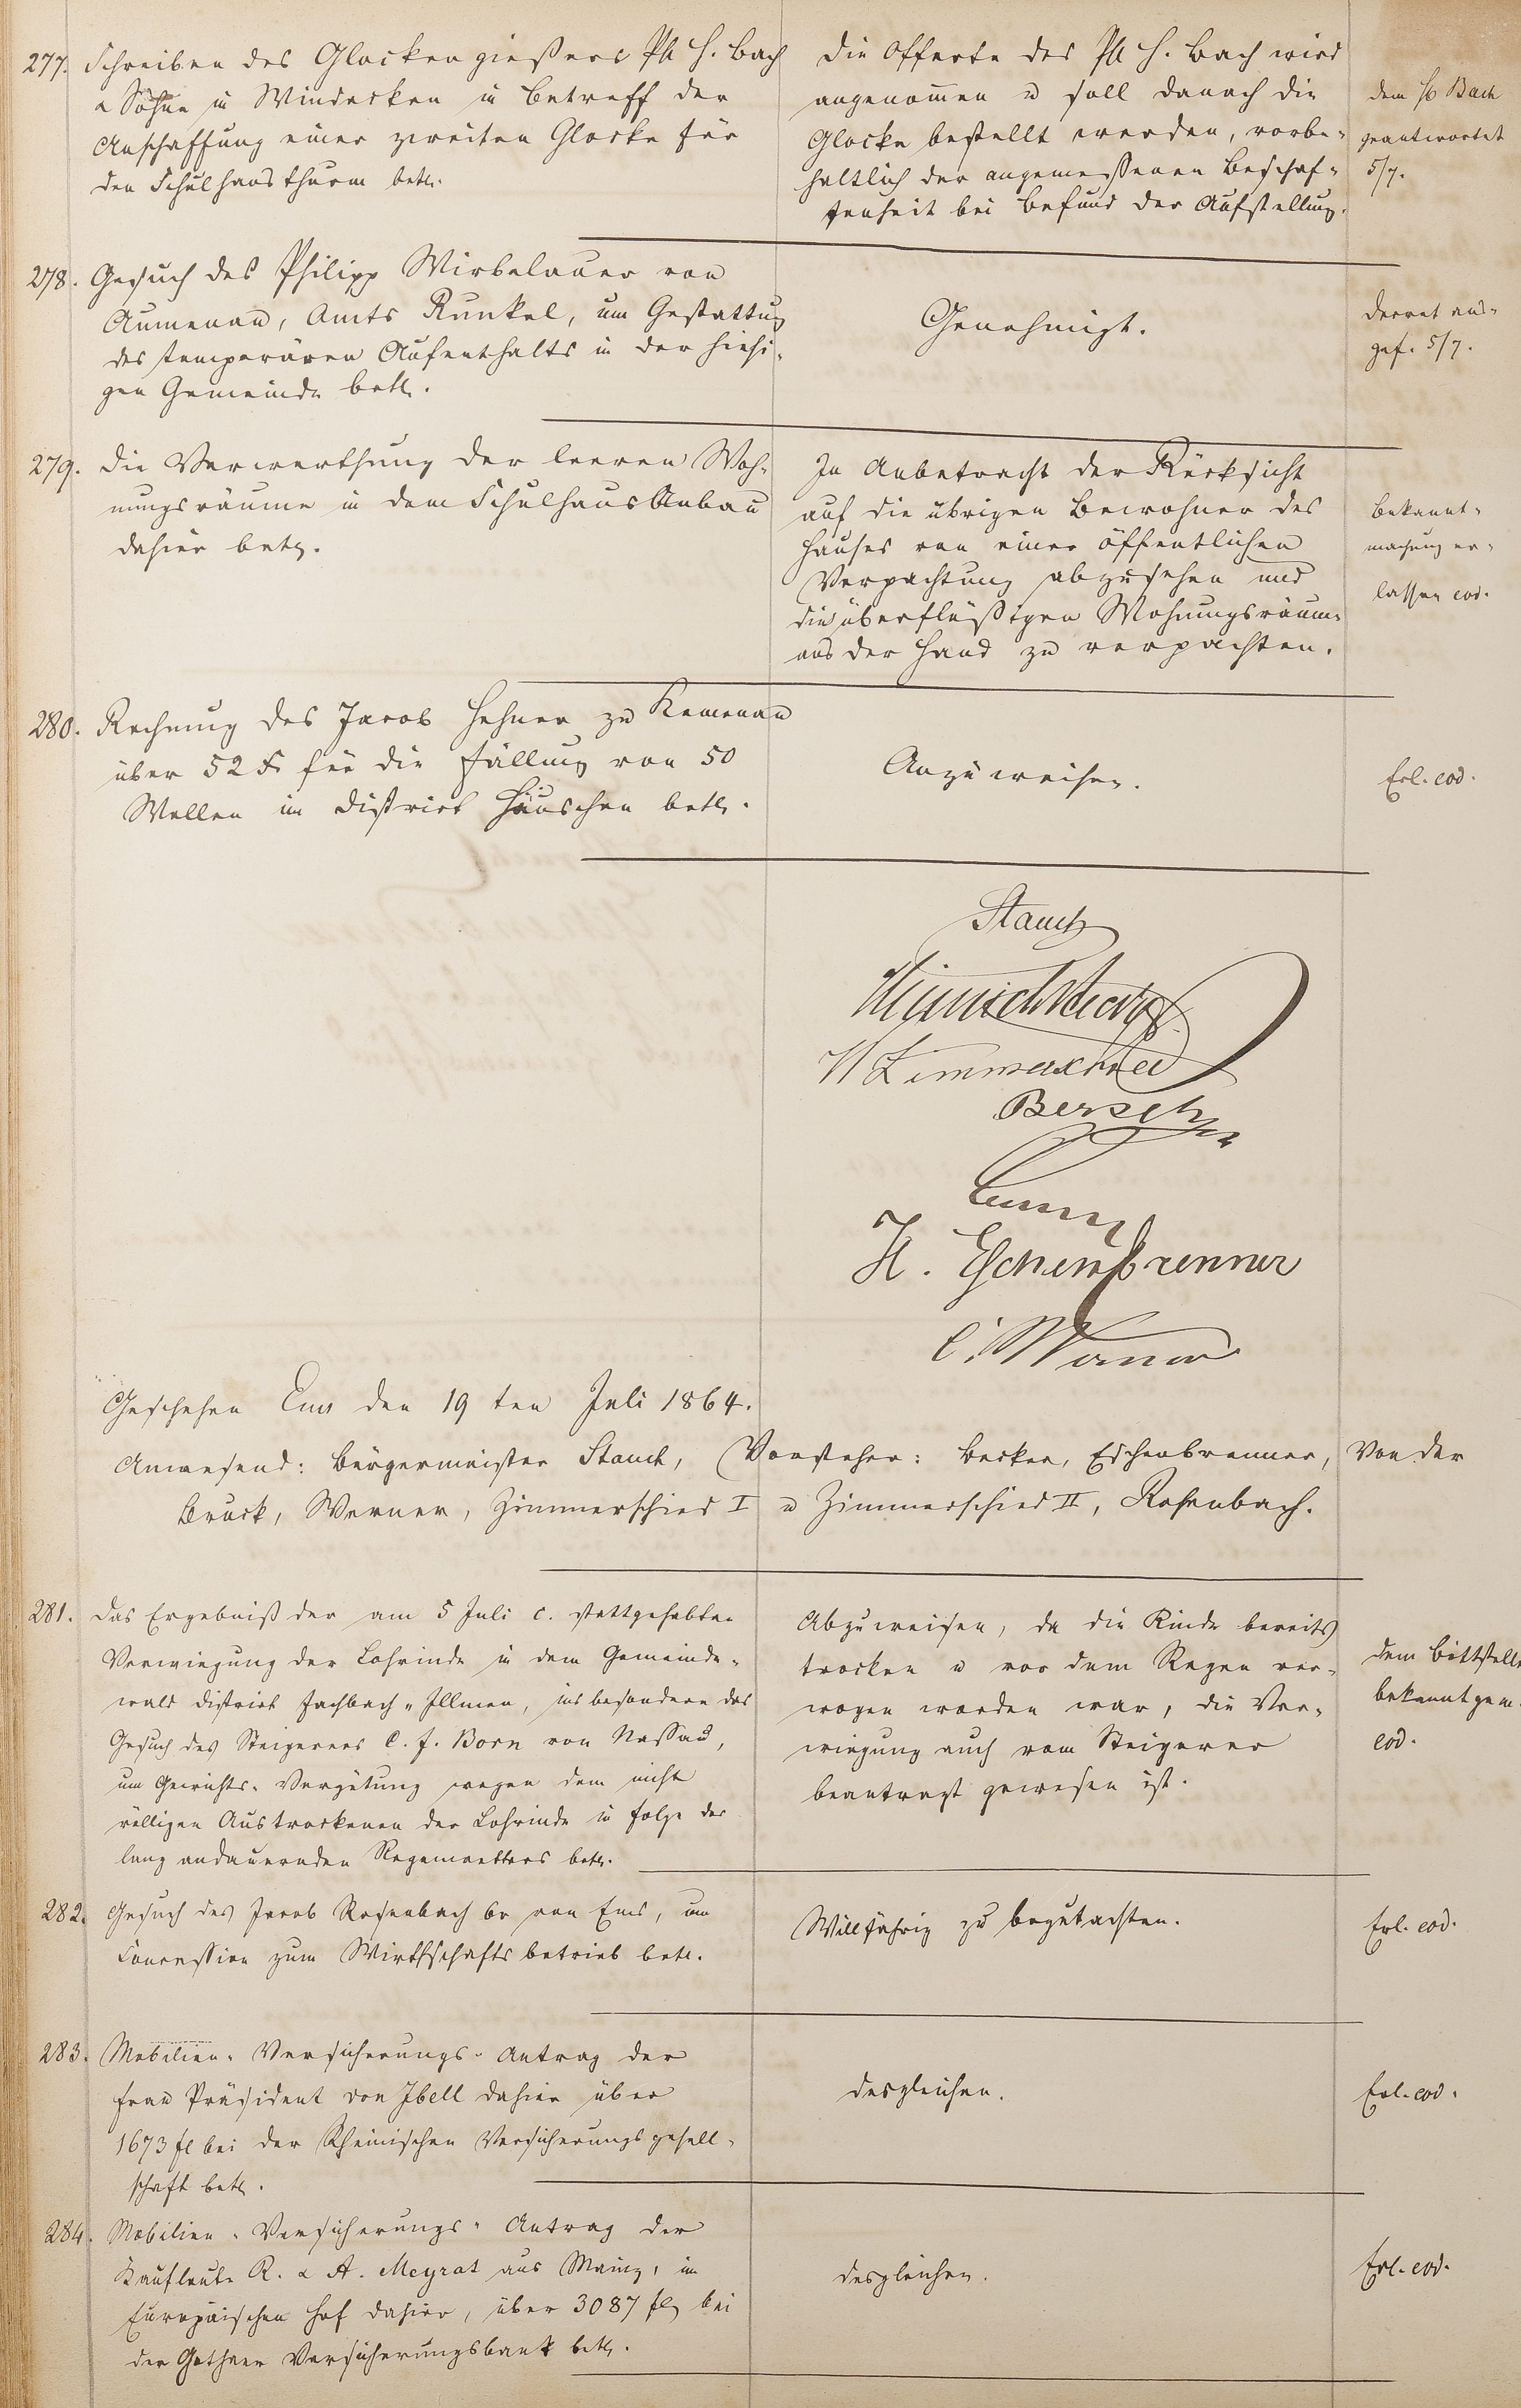 277. Schreiben des Glockengießers Ph. H. Bach
& Söhne in Windecken in Betreff der
Anschaffung einer zweiten Glocke für
den Schulhausthurm betr.
Die Offerte des Ph. H. Bach wird
angenommen u soll danach die
Glocke bestellt werden, vorbe-
haltlich der angemessenen Beschaf-
fenheit bei Befund der Aufstellung.
dem Bach
geantwortet
5/7.
278. Gesuch des Philipp Wirbelauer von
Aumenau, Amts Runkel, um Gestattung
des temporären Aufenthalts in der hiesi-
gen Gemeinde betr.
Genehmigt.
Decret aus-
gef. 5/7.
279. Die Verwerthung der leeren Woh-
nungsräume in dem Schulhaus Anbau
dahier betr.
In Anbetracht der Rücksicht
auf die übrigen Bewohner des
Hauses von einer öffentlichen
Verpachtung abzusehen und
die überflüßigen Wohnungsräume
aus der Hand zu verpachten.
Bekannt-
machung er-
lassen eod.
280. Rechnung des Jacob Hehner zu Kemenau
über 52 Fr für die Fällung von 50
Wellen im District Häuschen betr.
Anzuweisen.
Erl. eod.
Stauch
Zimmerschied
Bersch
H. Eschenbrenner
C. Werner
Geschehen Ems den 19 ten Juli 1864.
Anwesend: Bürgermeister Stauch, Vorsteher: Becker, Eschenbrenner, Von der
Bruck, Werner, Zimmerschied I u Zimmerschied II, Rosenbach.
281. Das Ergebniß der am 5 Juli c. stattgehabten
Verwiegung der Lohrinde in dem Gemeinde-
wald District Fachbach-Illmen, insbesondere das
Gesuch des Steigerers C. J. Born von Nassau,
um Gewichts-Vergütung wegen dem nicht
völligen Austrocknen der Lohrinde in Folge des
lang andauernden Regenwetters betr.
Abzuweisen, da die Rinde bereits
trocken u vor dem Regen ver-
wogen worden war, die Ver-
wiegung auch vom Steigerer
beantragt gewesen ist.
Dem Bittstelle
bekannt gem.
eod.
282. Gesuch des Jacob Rosenbach 6r von Ems, um
Concession zum Wirthschaftsbetrieb betr.
Willfährig zu begutachten.
Erl. eod.
283. Mobilien-Versicherungs-Antrag der
Frau Präsident von Ibell dahier über
1673 fl bei der Rheinischen Versicherungsgesell-
schaft betr.
desgleichen.
Erl. eod.
284. Mobilien-Versicherungs-Antrag der
Kaufleute R. & A. Meyrat aus Mainz, im
Europäischen Hof dahier, über 3087 fl bei
der Gothaer Versicherungsbank betr.
desgleichen.
Erl. eod.